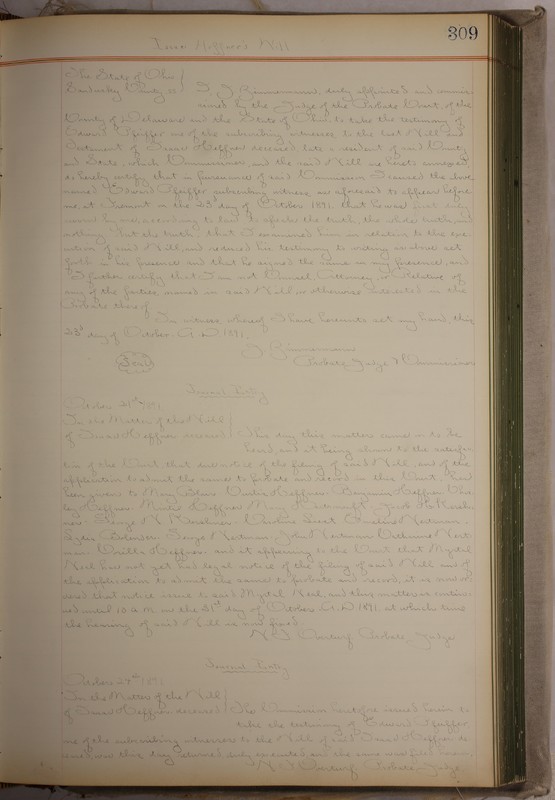 309
Isaac Heffner's Will
The State of Ohio
Sandusky County ss I, J. Zimmermann, duly appointed and commis
sioned by the Judge of the Probate Court, of the
County of Delaware and the State of Ohio to take the testimony of
Edward Pfeiffer one of the subscribing witnesses to the last Will and
Testament of Isaac Heffner deceased late a resident of said County
and State, which Commission, and the said Will are hereto annexed,
do hereby certify that in pursuance of said Commission I caused the above
named Edward Pfeiffer subscribing witness, as aforesaid to appear before
me, at Fremont on the 23d day of October 1891. that he was first duly
sworn by me, according to law to speak the truth, the whole truth, and
nothing but the truth, that I examined him in relation to the exe
cution of said Will, and reduced his testimony to writing as above set
forth in his presence and that he signed the same in my presence, and
I further certify that I am not Counsel, Attorney, or Relative of
any of the parties named in said Will, or otherwise interested in the
Probate thereof.
In witness whereof I have hereunto set my hand, this
23d day of October A.D. 1891.
Seal
J. Zimmermann
Probate Judge & Commissioner
Journal Entry
October 21st 1891
In the Matter of the Will
of Isaac Heffner deceased This day this matter came on to be
heard, and it being shown to the satisfac
tion of the Court, that due notice of the filing of said Will, and of the
application to admit the same to probate and record in this Court, had
been given to Mary Heffner Benjamin Heffner
Heffner Heffner Mary
George
George
Heffner and it appearing to the Court that Myrtil
Neal has not yet had legal notice of the filing of said Will and of
the application to admit the same to probate and record, it is now or
dered that notice issue to said Myrtil Neal, and this matter is contin
ued until 10 a.m. on the 31st day of October A.D. 1891, at which time
the hearing of said Will is now fixed.
N. F. Overturf Probate Judge
Journal Entry
October 27th 1891
In the Matter of the Will
of Isaac Heffner deceased The Commission heretofore issued herein to
take the testimony of Edward Pfeiffer
one of the subscribing witnesses to the Will of said Isaac Heffner de
ceased, was this day returned duly executed, and the same now filed herein.
N. F. Overturf Probate Judge